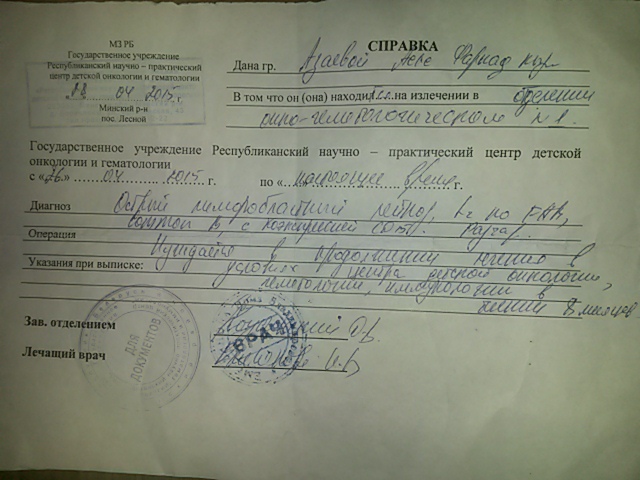 МЗ РБ
Государственное учреждение
Республиканский научно – практический
центр детской онкологии и гематологии
04 2015 г.
Минский р-н
пос. Лесной
СПРАВКА
Дана гр. Фархад кызы
В том что он (она) находилась на излечении в отделении
онко-гематологическом №1.
Государственное учреждение Республиканский научно – практический центр детской
онкологии и гематологии
с « » 04 2015 г. по « настоящее время г.
Диагноз Острый лимфобластный лейкоз, по FAB,
common B с
Операция
Указания при выписке: Нуждается в продолжении лечения в
условиях центра детской онкологии,
гематологии, иммунологии в
течении 8 месяцев
Зав. отделением
Лечащий врач
ДЛЯ ДОКУМЕНТОВ
ВРАЧ